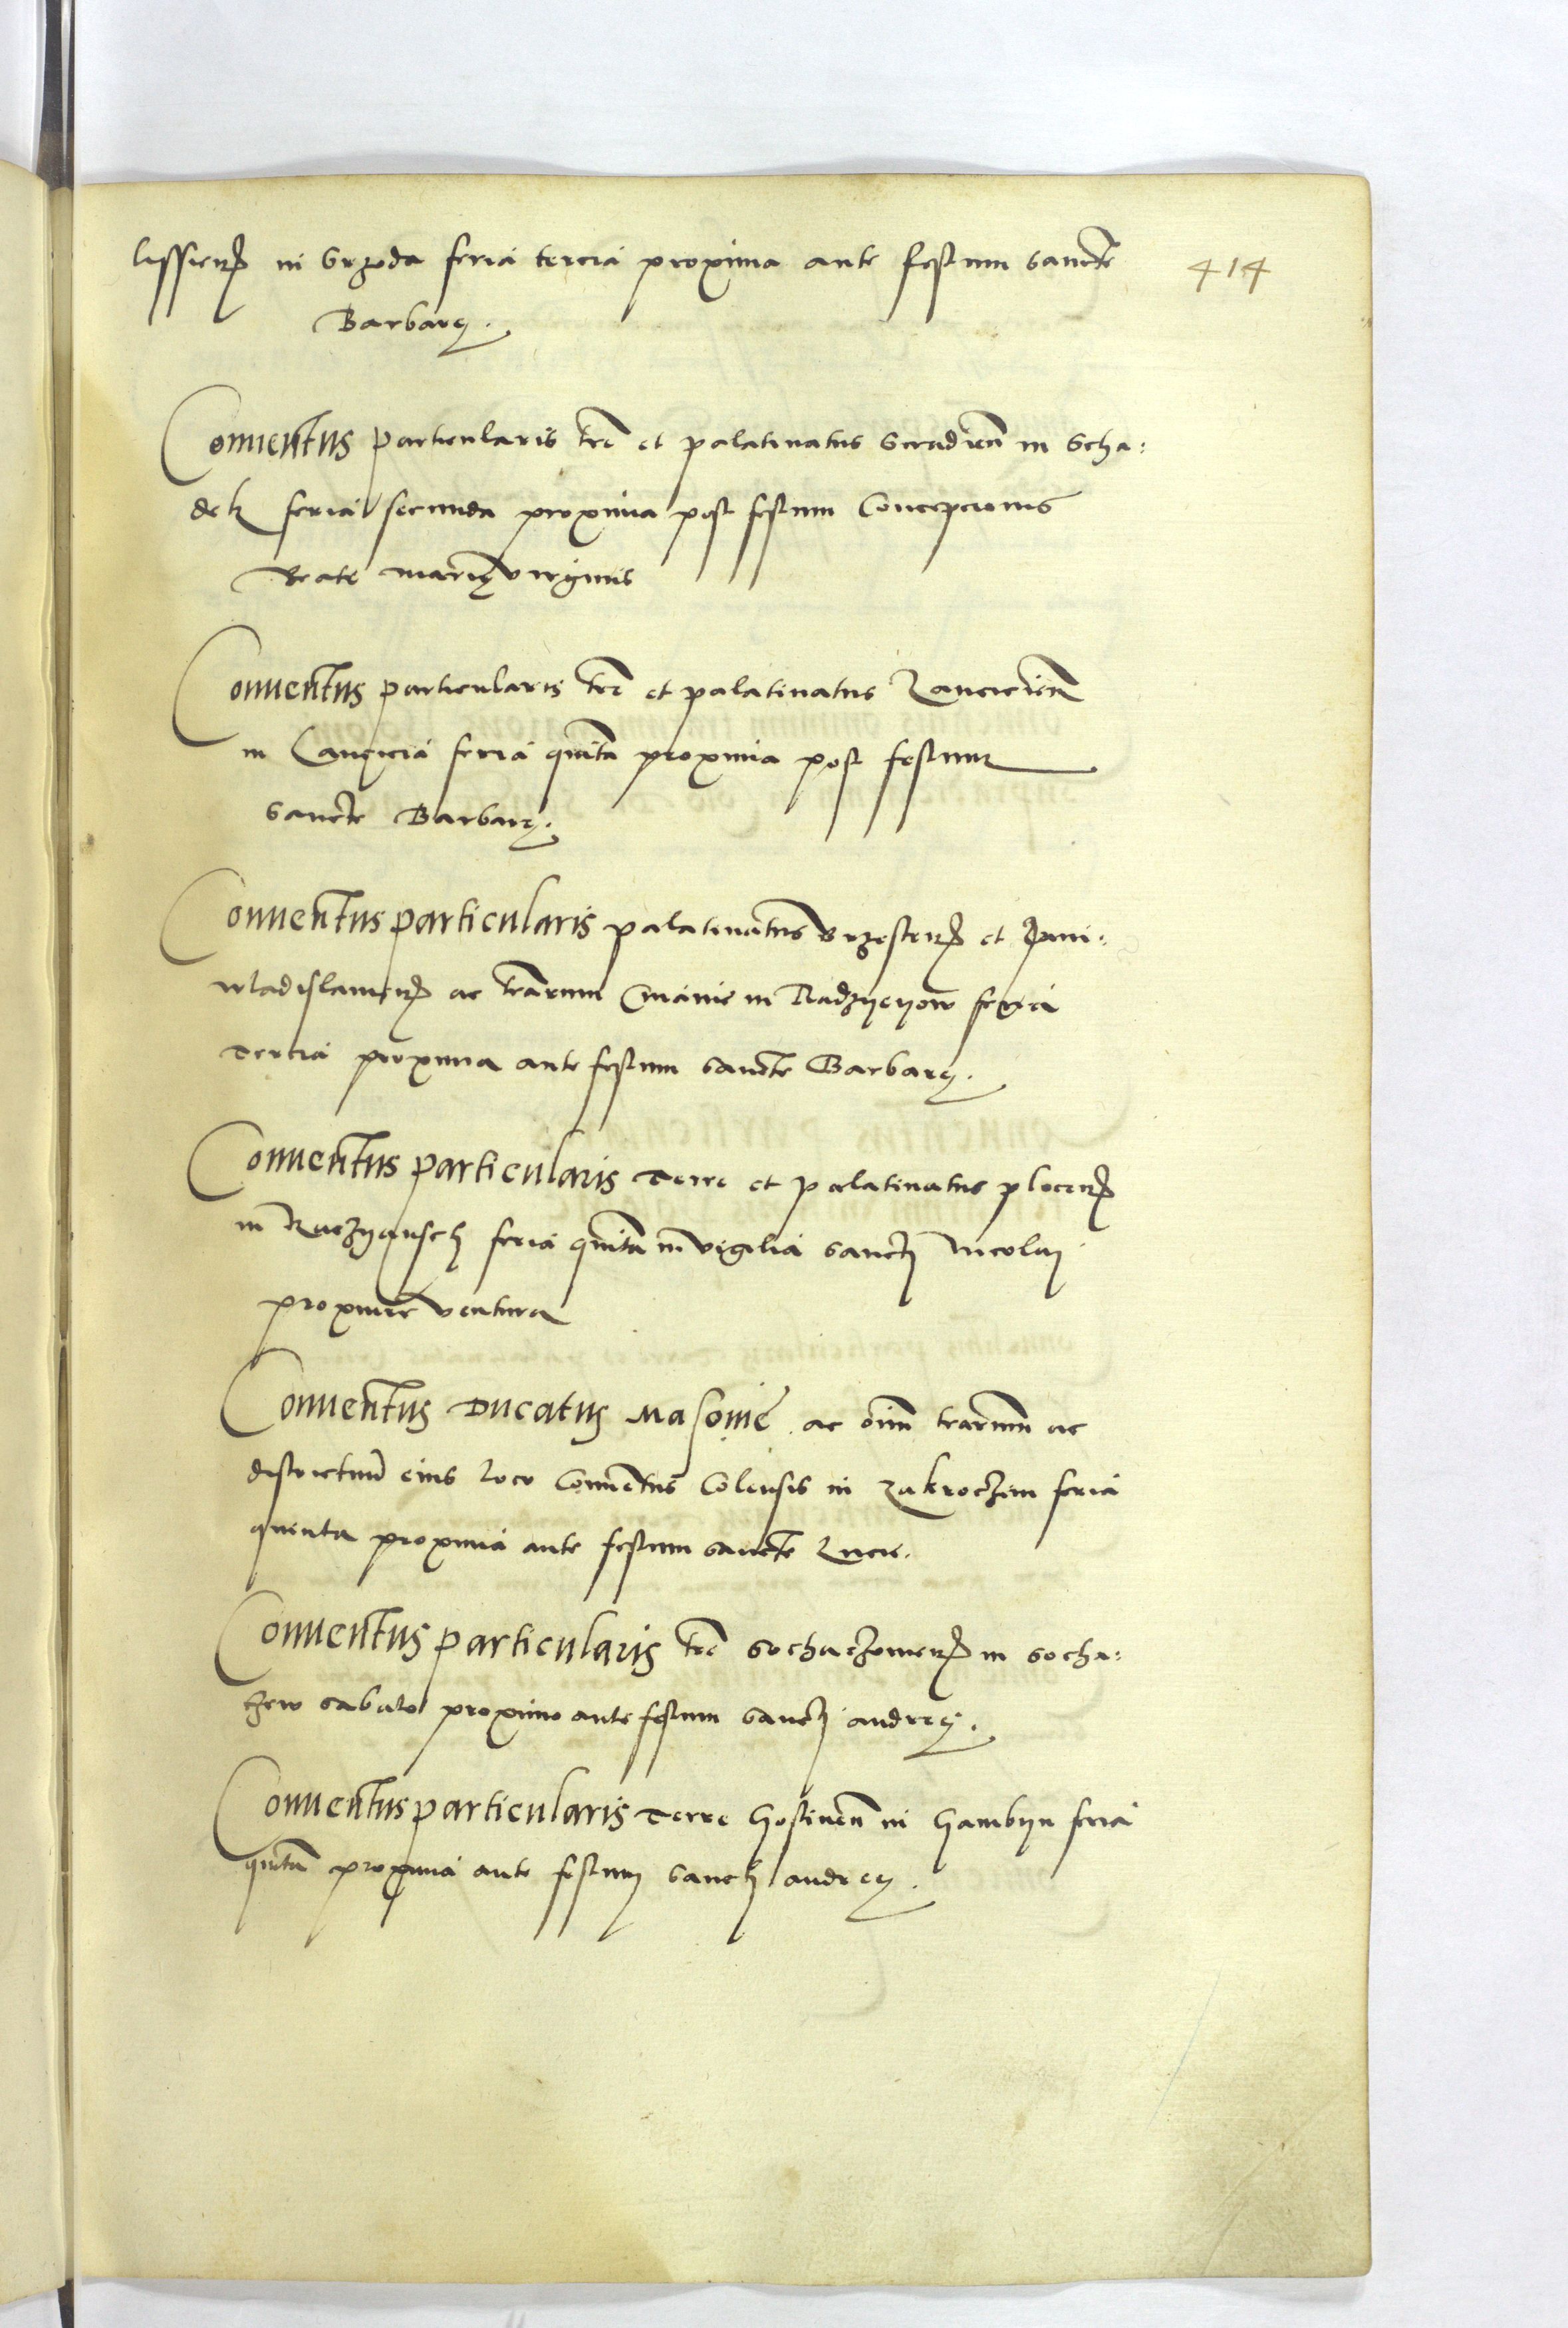 lissien̄ in Srzoda feria tercia proxima ante festum Sancte
414
Barbarę.
Conventus particularis tr̄e et palatinatus Siradien̄ in Scha:
dek feria secunda proxima post festum Concepcionis
Beate Marię virginis
Conventus particularis tr̄e et palatinatus Lancicien̄
in Lancicia feria quīta proxima post festum
Sancte Barbarę.
Conventus particularis palatinatus Brzesten̄ et Juni:
wladislavien̄ ac tr̄arum Cuiavie in Radzyeyow feria
tercia proxima ante festum Sancte Barbarę.
Conventus particularis terre et palatinatus plocen̄
in Raczyansch feria quīta in vigilia Sancti Nicolai
proxime ventura
Conventus Ducatus Masovie ac oīm tr̄arum ac
districtuum eius loco Conventus Colensis in Zakroczim feria
quinta proxima ante festum Sancte Lucie.
Conventus particularis tr̄e Sochaczovien̄ in Socha:
czew Sabato proximo ante festum Sancti Andreę.
Conventus particularis terre Gostinen̄ in Gambyn feria
quīta proxima ante festum Sancti Andreę.